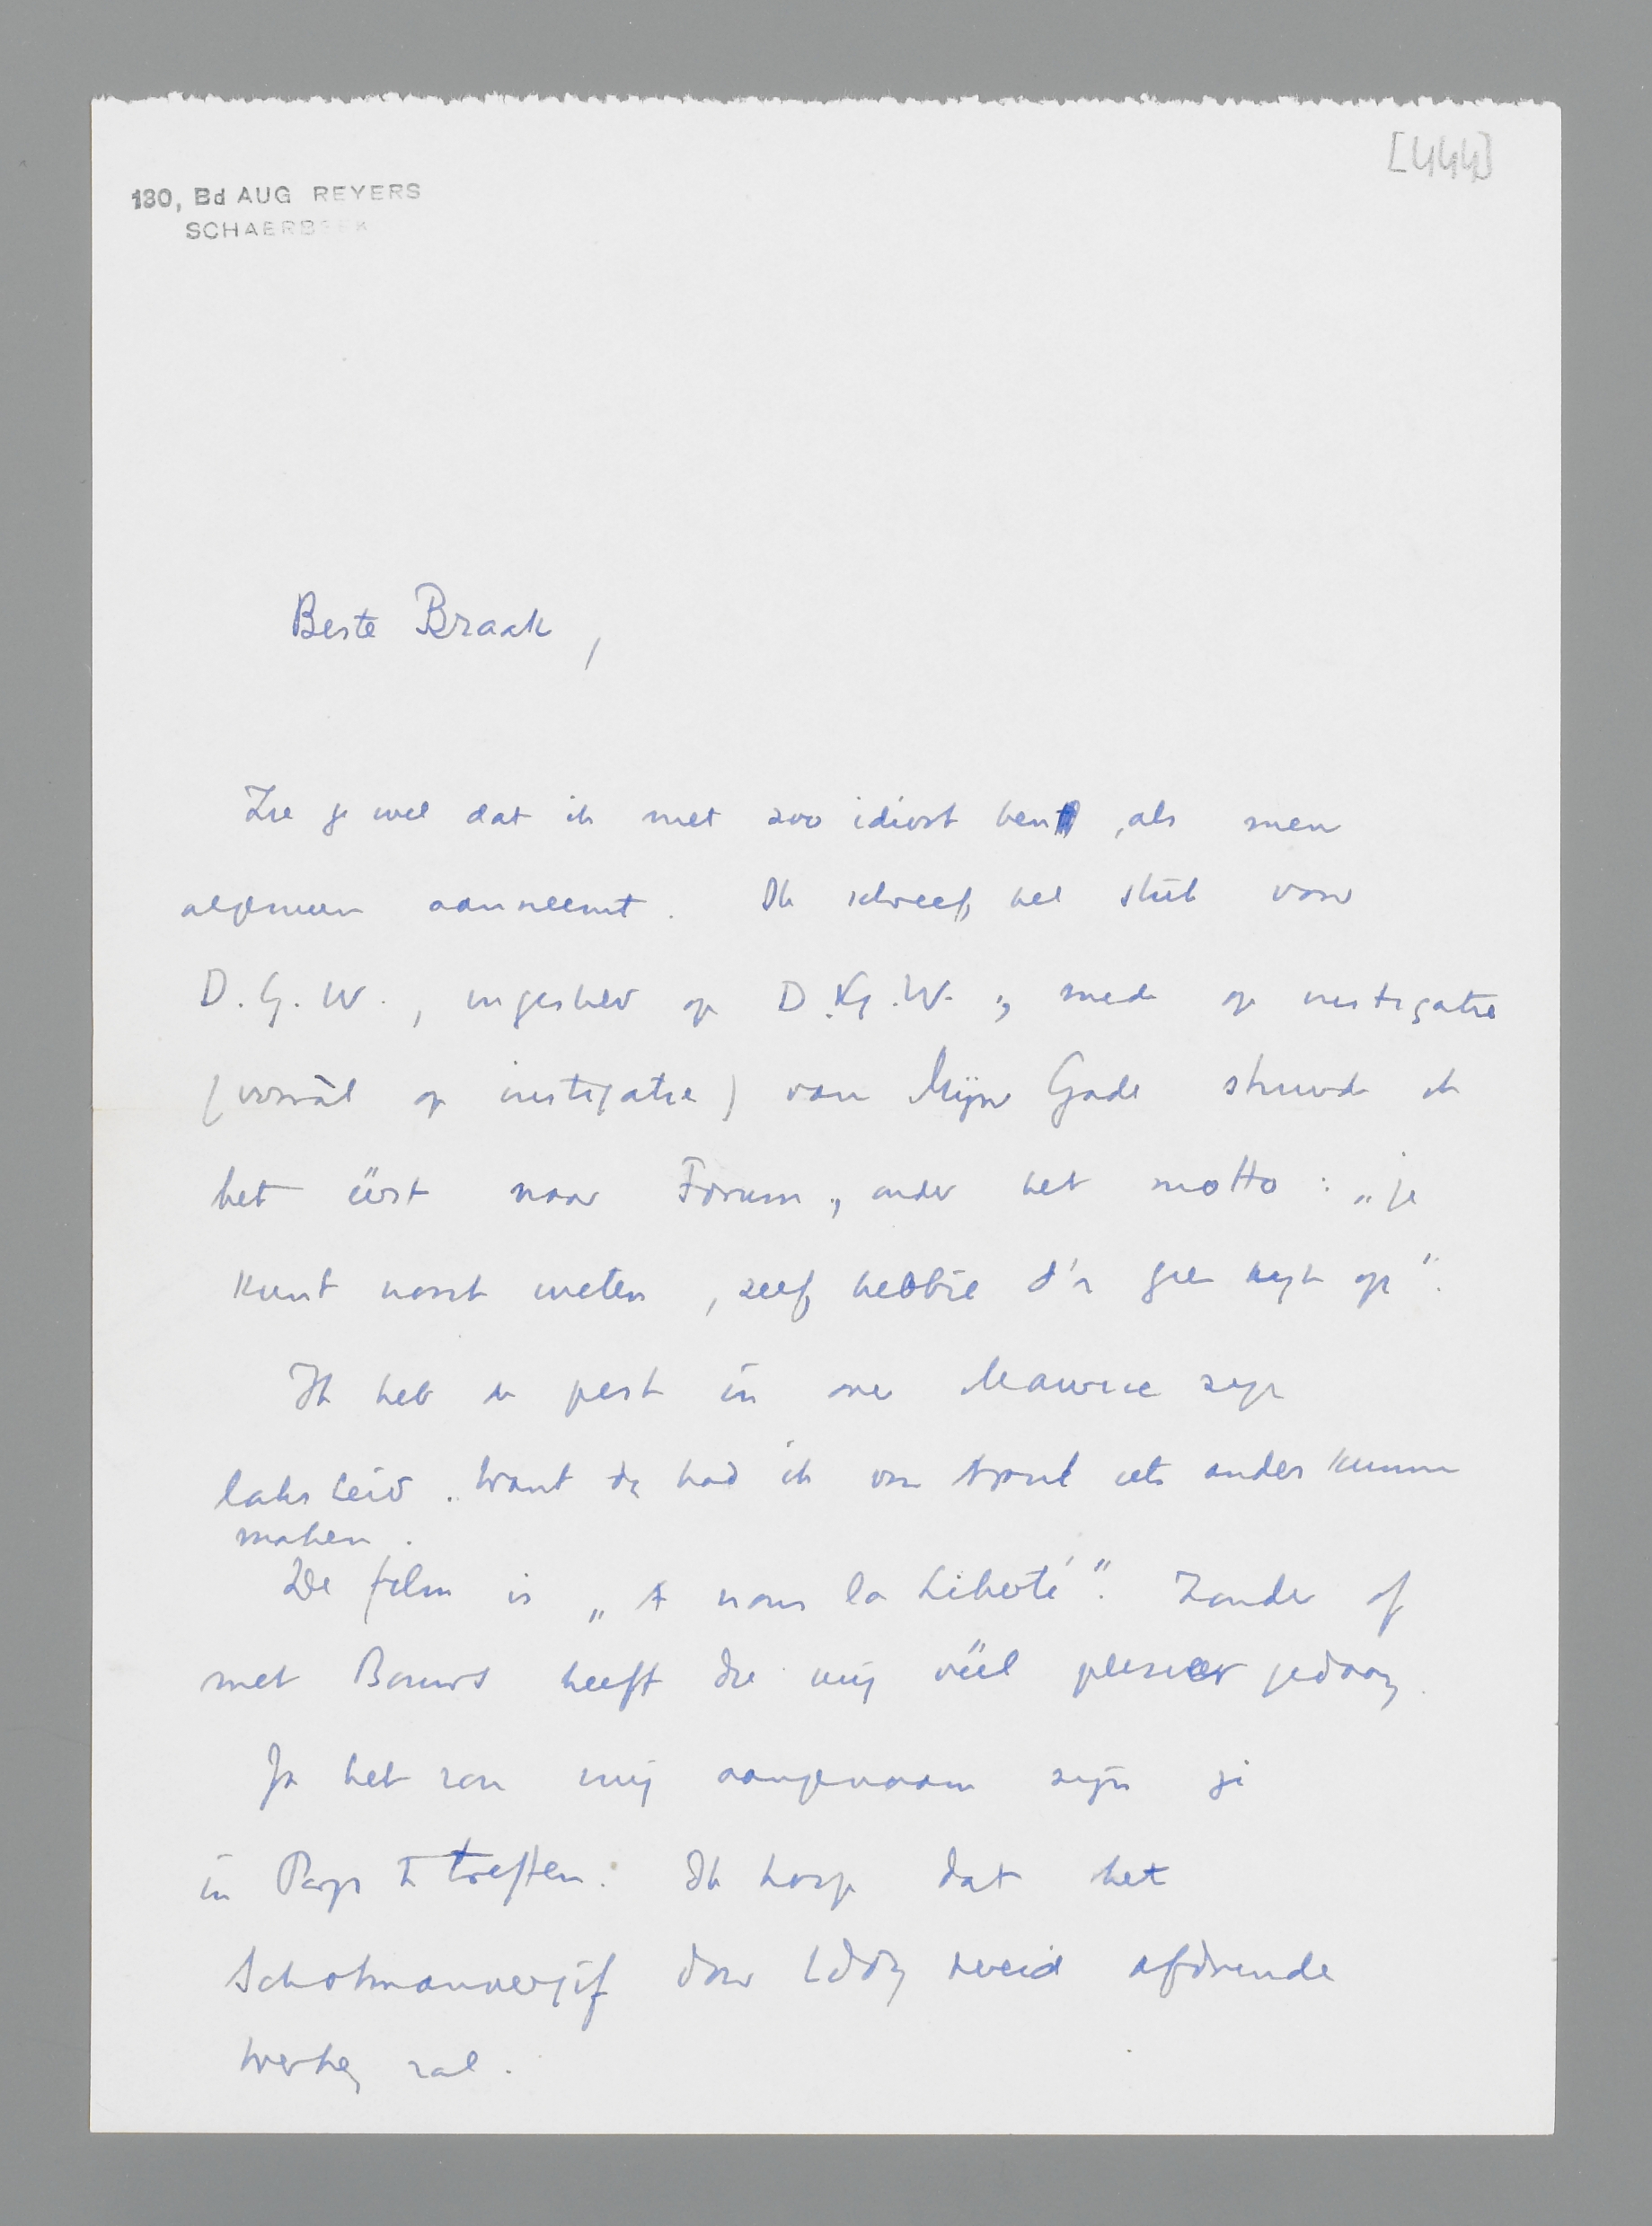 [444]
180, Bd AUG REYERS
SCHAERBEEK
Beste Braak,
Zie je wel dat ik niet zoo idioot ben, als men
algemeen aanneemt. Ik schreef het stuk voor
D.G.W., ingesteld op D.G.W., mede op instigatie
(vooràl op instigatie) van Mijn Gade stuurde ik
het éérst naar Forum, onder het motto: „je
kunt nooit weten, zelf hebbie d'r geen kijk op".
Ik heb de pest in over Maurice zijn
laksheid. Want dan had ik van A nous iets anders kunnen
maken.
De film is „A nous la Liberté". Zonder of
met Bouws heeft die mij véél plezier gedaan.
Ja het zou mij aangenaam zijn je
in Parijs te treffen. Ik hoop dat het
Schotmanvergif door Eddy bereid afdoende
werken zal.